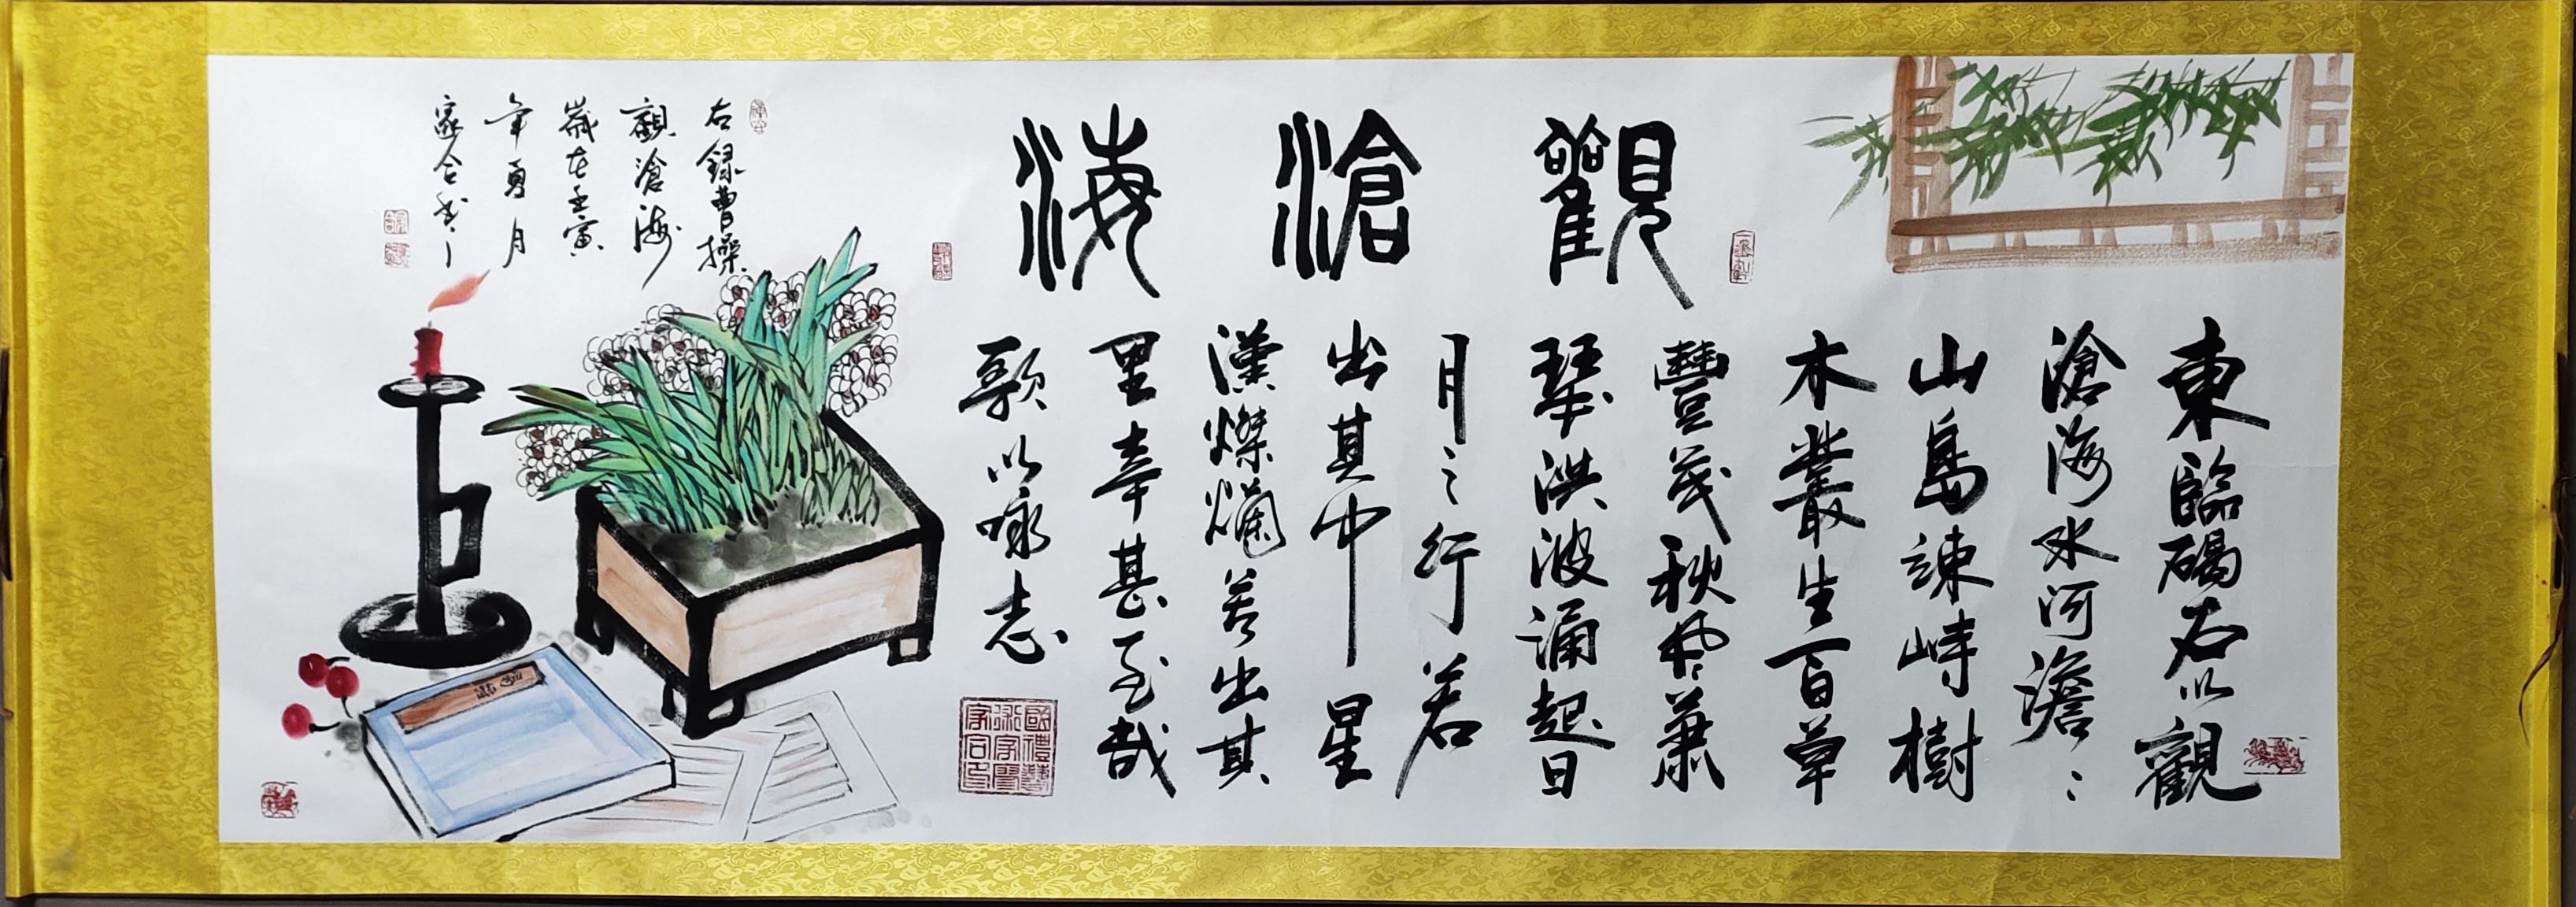 觀滄海
東臨碣石以觀
滄海水河澹〻
山島竦峙樹
木叢生百草
豐茂秋風蕭
瑟洪波涌起日
月之行若
出其中星
漢燦爛若出其
里幸甚至哉
歌以咏志
國禮藝
術家賈
家合印
右録曹操
觀滄海
歲在壬寅
年夏月
家合书